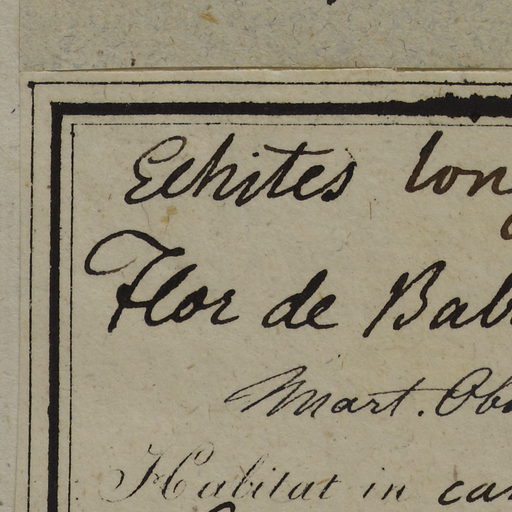 Echites lon
Flor de Bab
Mart. Obs
Habitat in ca